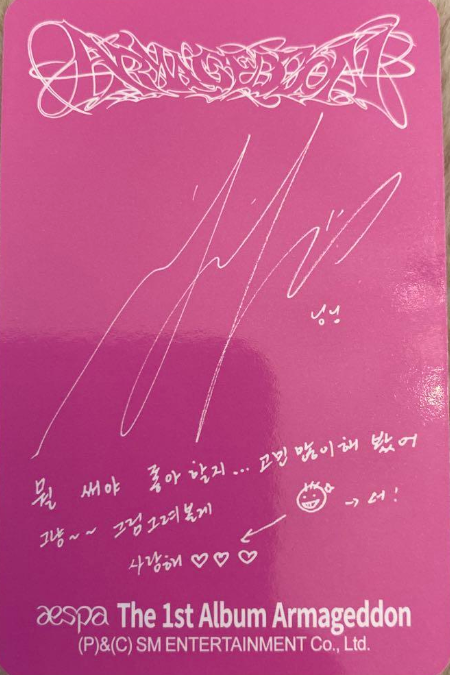 ARMAGEDDON
닝닝
뭘 써야 좋아할지... 고민 많이 해 봤어
그냥~~ 그림 그려볼게
사랑해 ♡♡♡
aespa The 1st Album Armageddon
(P)&(C) SM ENTERTAINMENT Co., Ltd.